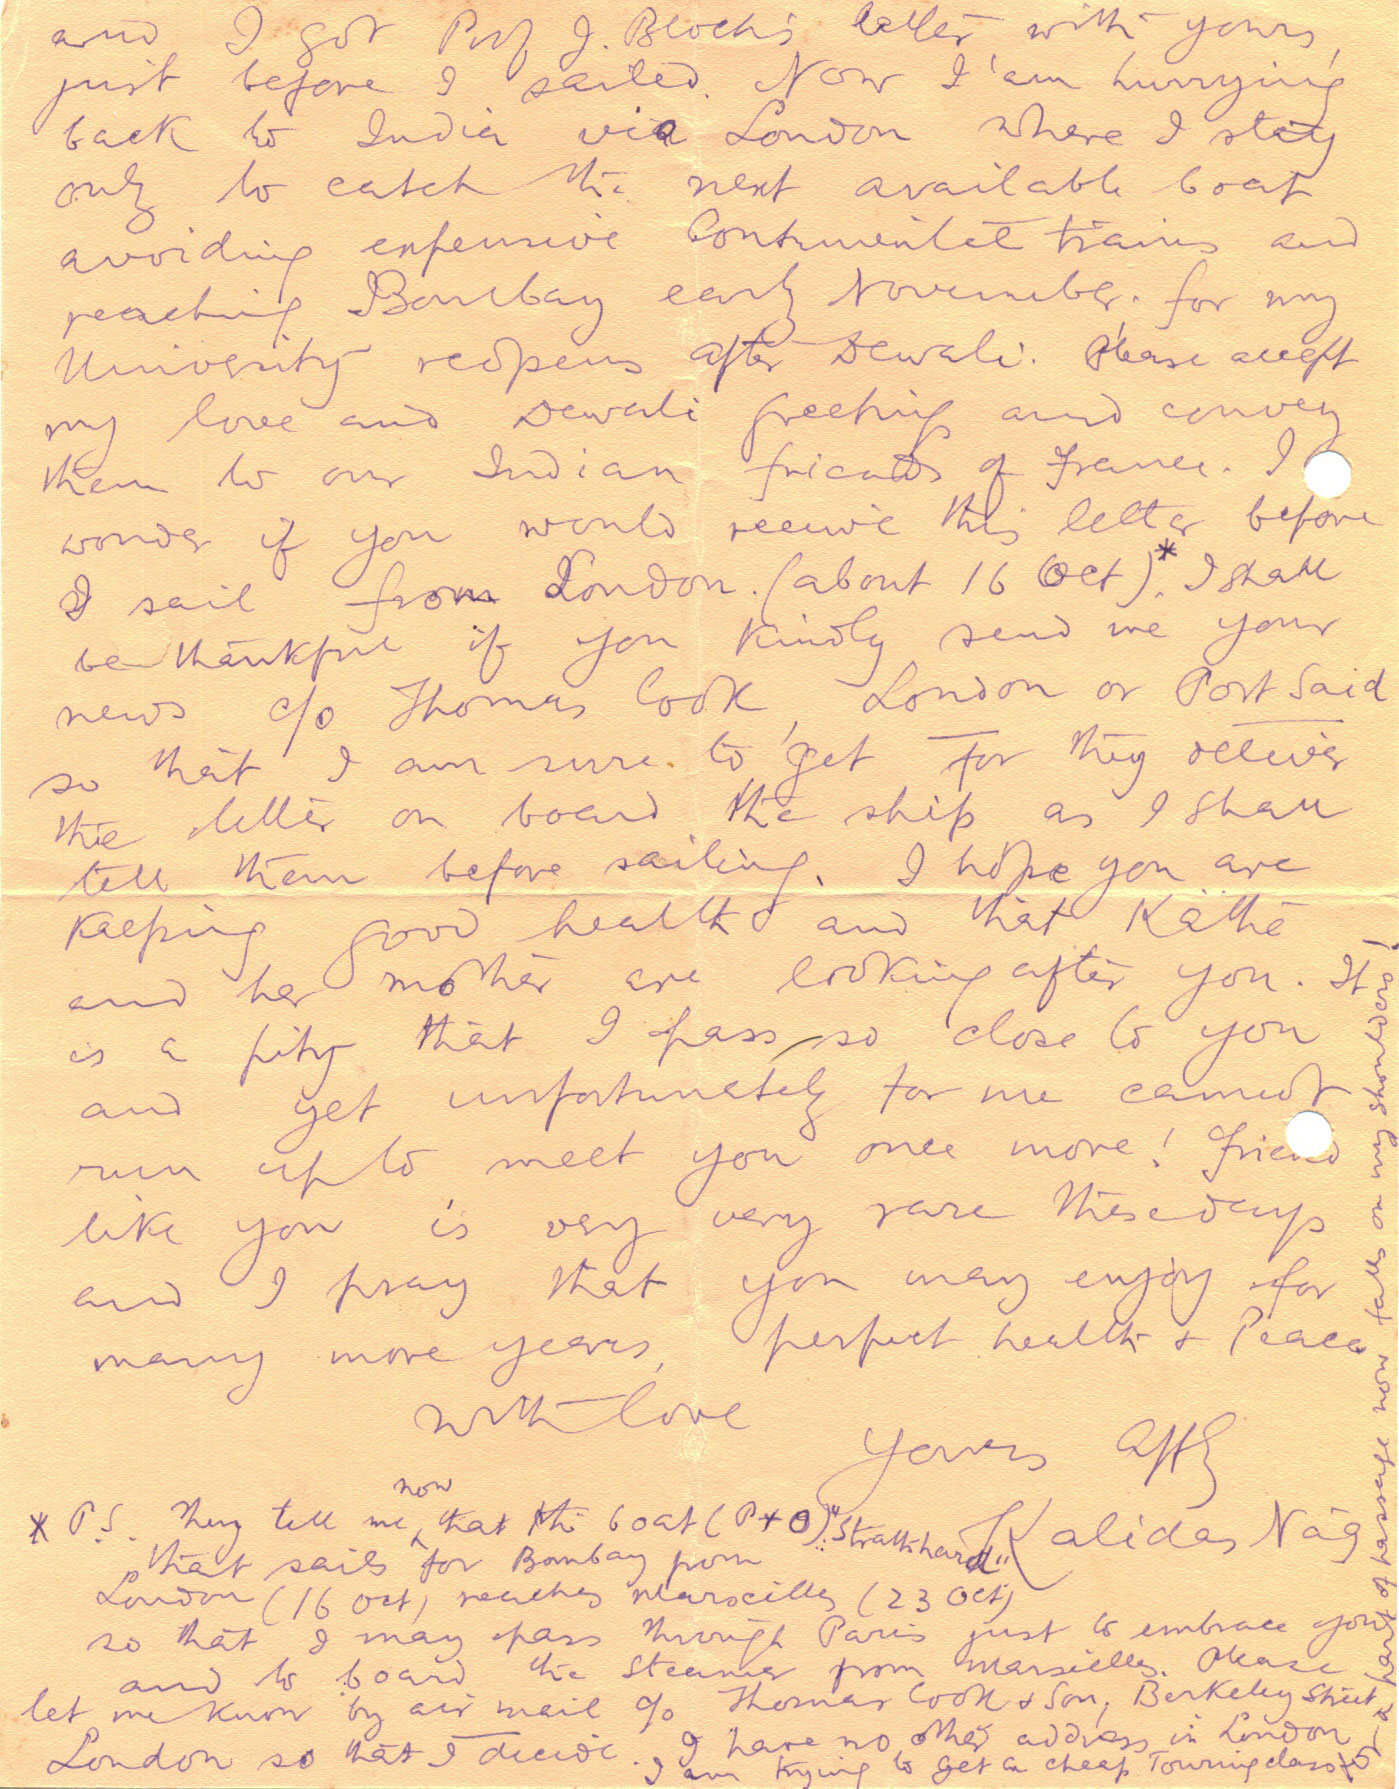 and I got Prof J. Bloch's letter with yours,
just before I sailed. Now I am hurrying
back to India via London where I stay
only to catch the next available boat
avoiding expensive Continental trains and
reaching Bombay early November, for my
University reopens after Dewali. Please accept
my love and Dewali greetings and convey
them to our Indian friends of France. I
wonder if you would receive this letter before
I sail from London. (about 16 Oct)*. I shall
be thankful if you kindly send me your
news c/o Thomas Cook, London or Port Said
so that I am sure to get for they deliver
the letter on board the ship as I shall
tell them before sailing. I hope you are
keeping good health and that Käthe
and her mother are looking after you. It
is a pity that I pass so close to you
and yet unfortunately for me cannot
run up to meet you once more! Friend
like you is very very rare these days
and I pray that you may enjoy for
many more years, perfect health & Peace
with love
Yours affly
Kalidas Nag
* P.S. They tell me now that the boat (P+O) "Strathhard"
that sails for Bombay from
London (16 Oct) reaches Marseilles (23 Oct)
so that I may pass through Paris just to embrace you
and to board the Steamer from Marseilles. Please
let me know by air mail c/o Thomas Cook & Son, Berkeley Street
London so that I decide. I have no other address in London
I am trying to get a cheap Touring class
part of passage now falls on my shoulders!